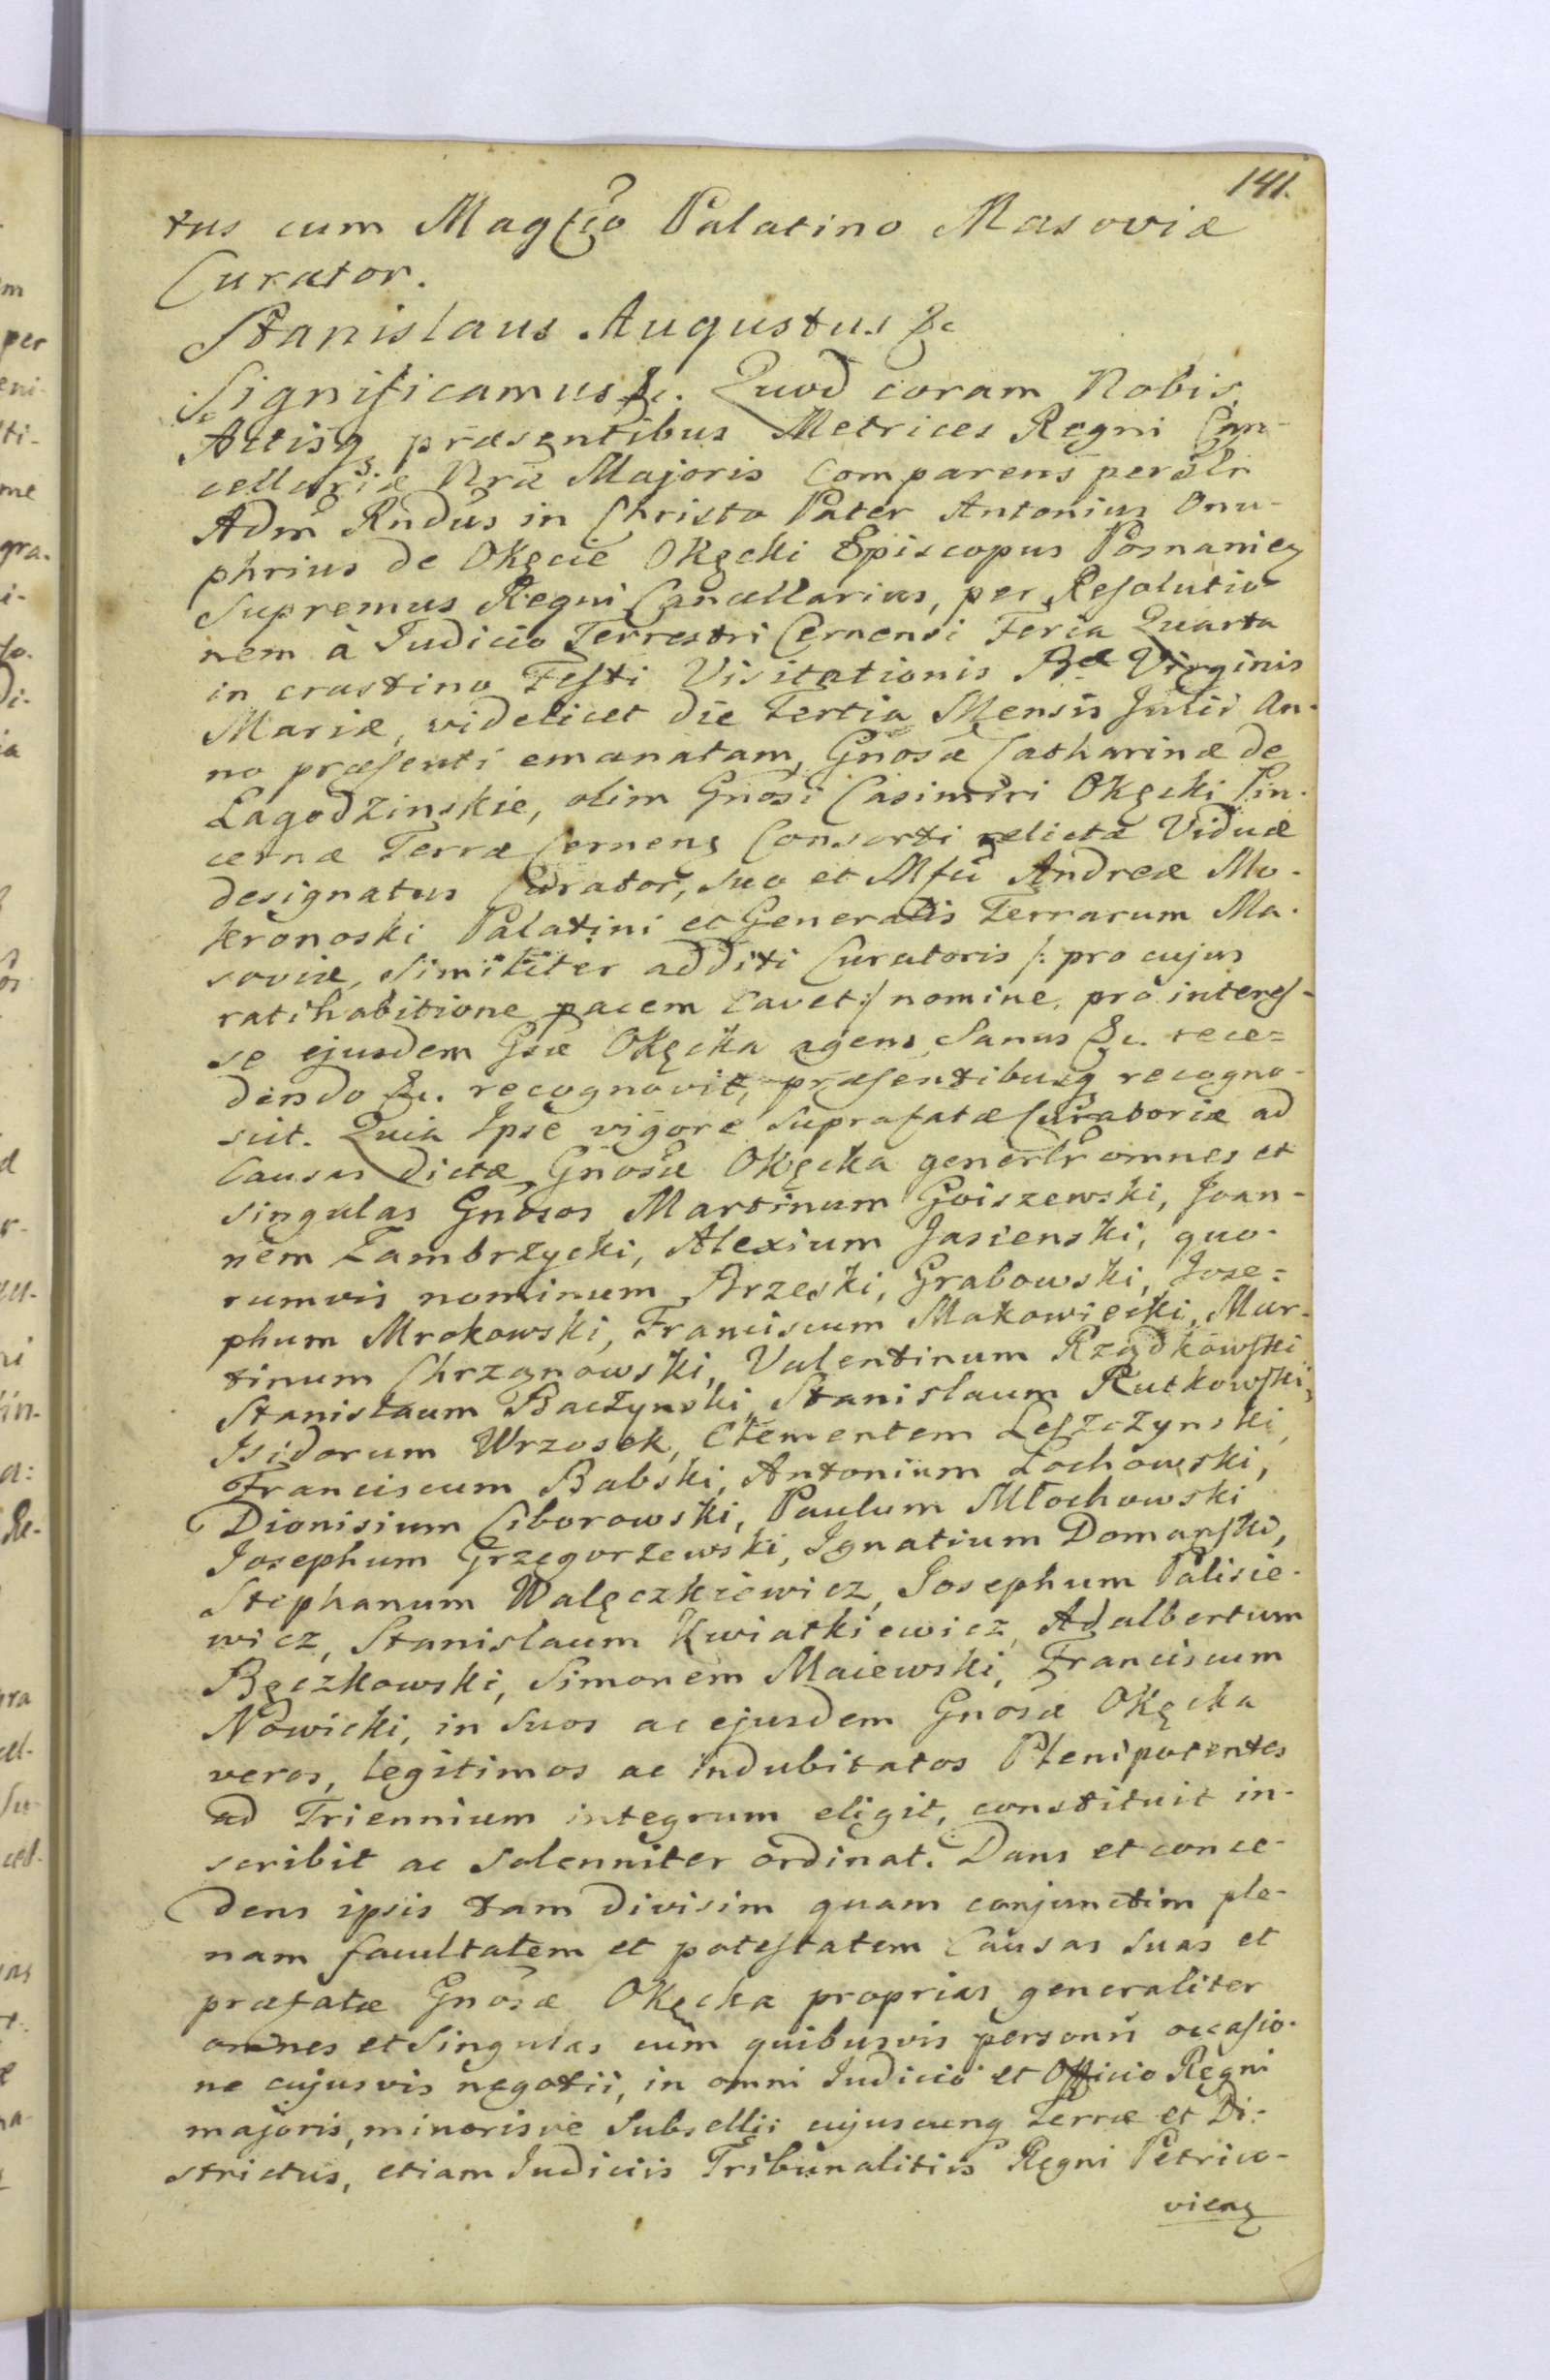 141.
tus cum Magfico Palatino Masoviæ
Curator.
Stanislaus Augustus &c
Significamus &c. Quod coram Nobis,
Actisq præsentibus Metrices Regni Can-
cellariæ Nræ Majoris Comparens perillr
Adm Rndus in Christo Pater Antonius Onu-
phrius de Okęcie Okęcki Episcopus Posnanieq
Supremus Regni Cancellarius, per Resolutio
nem à Judicio Terrestri Cernensi Feria Quarta
in crastino Festi Visitationis Bæ Virginis
Mariæ, videlicet die Tertia Mensis Julii An-
no præsenti emanatam, Gnosæ Catharinæ de
Lagodzinskie, olim Gnosi Casimiri Okęcki Pin-
cernæ Terræ Cerneng Consorti relictæ Viduæ
designatus Curator, suo et Mfci Andreæ Mo-
kronoski Palatini et Generalis Terrarum Ma-
soviæ, similiter additi Curatoris /: pro cujus
ratihabitione pacem cavet :/ nomine, pro interes-
se ejusdem Gsæ Okęcka agens, Sanus &c. rece=
dendo &c. recognovit, præsentibusq recogno-
scit. Quia Ipse vigore suprafatæ Curatoriæ ad
Causas dictæ Gnosæ Okęcka generlr omnes et
singulas Gnosos Martinum Goiszewski, Joan-
nem Zambrzycki, Alexium Jasienski, quo-
rumvis nominum Brzeski, Grabowski, Jose=
phum Mrokowski, Franciscum Makowiecki, Mar-
tinum Chrzanowski, Valentinum Rządkowski
Stanislaum Baczynski, Stanislaum Rutkowski,
Isidorum Wrzosek, Clementem Leszczynski,
Franciscum Babski, Antonium Lochowski,
Dionisium Ciborowski, Paulum Młochowski
Josephum Grzegorzewski, Ignatium Domanski,
Stephanum Walęczkiewicz, Josephum Palisie-
wicz, Stanislaum Kwiatkiewicz, Adalbertum
Bęczkowski, Simonem Maiewski, Franciscum
Nowicki, in suos ac ejusdem Gnosæ Okęcka
veros, legitimos ac indubitatos Plenipotentes
ad Triennium integrum eligit, constituit in-
scribit ac solenniter ordinat. Dans et conce-
dens ipsis tam divisim quam conjunctim ple-
nam facultatem et potestatem Causas suas et
præfatæ Gnosæ Okęcka proprias generaliter
omnes et singulas cum quibusvis personis occasio-
ne cujusvis negotii, in omni Judicio et Officio Regni
majoris, minorisve Subsellii cujuscunq Terræ et Di-
strictus, etiam Judiciis Tribunalitiis Regni Petrico-
vieng